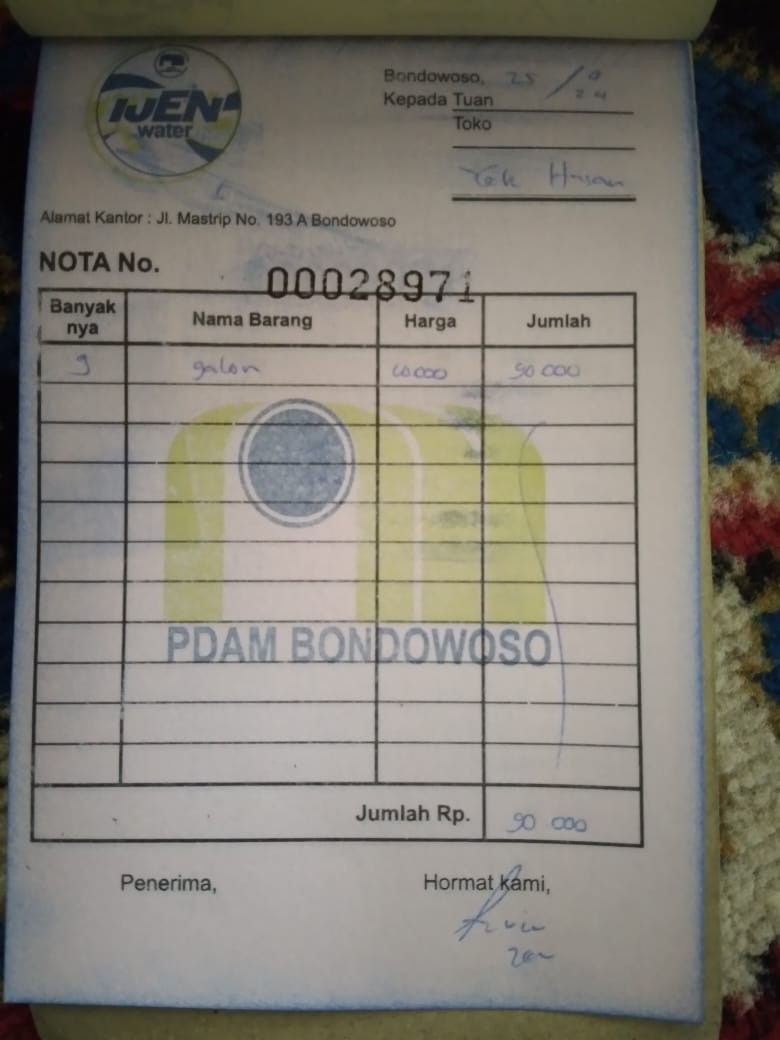 IJEN
water
Bondowoso, 25 /
24
Kepada Tuan
Toko
Hasan
Alamat Kantor : Jl. Mastrip No. 193 A Bondowoso
NOTA No. 00028971
Banyak nya Nama Barang Harga Jumlah
9 galon 10000 90 000
PDAM BONDOWOSO
Jumlah Rp. 90 000
Penerima, Hormat kami,